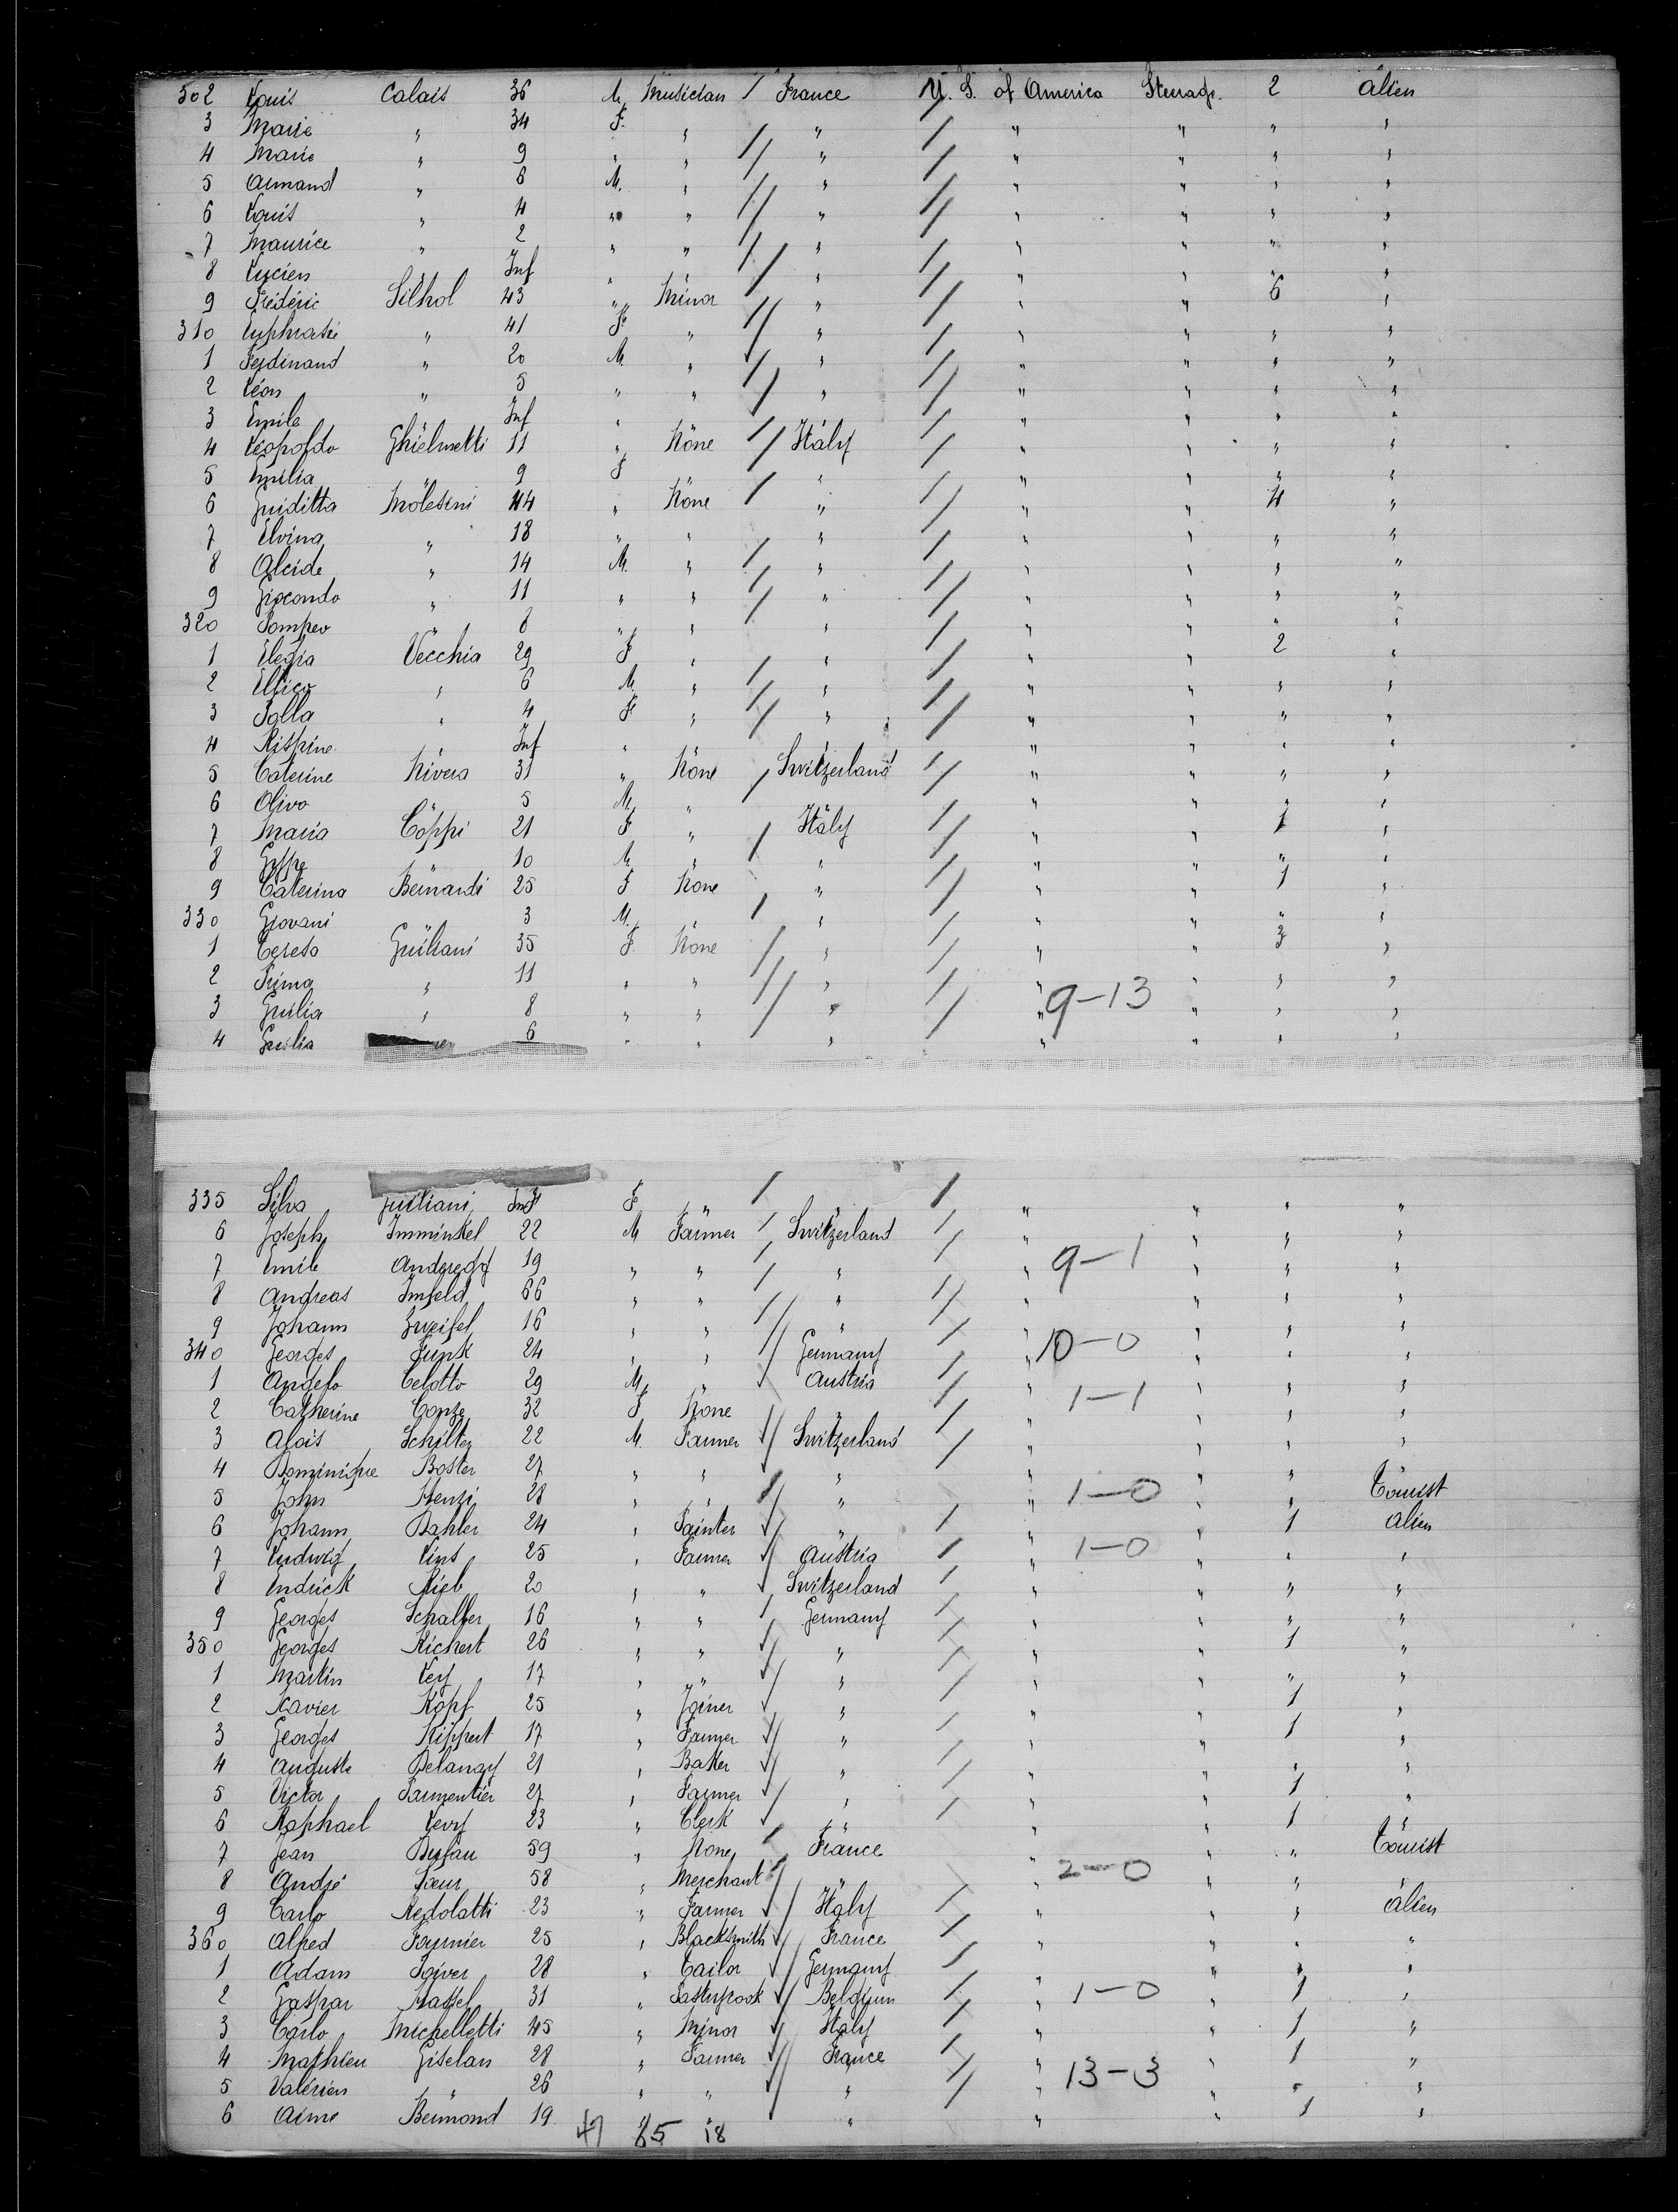 502 Louis Calais 36 M. Musician / France U. S. of America Steerage. 2 Alien
3 Marie " 34 F. " " " " " "
4 Marie " 9 " " " " " " "
5 Armand " 6 M. " " " " " "
6 Louis " 4 " " " " " " "
7 Maurice " 2 " " " " " " "
8 Lucien " Inf " " " " " " "
9 Frédéric Silhol 43 " Minor " " " 6 "
310 Euphrasie " 41 F. " " " " " "
1 Ferdinand " 20 M. " " " " " "
2 Léon " 5 " " " " " " "
3 Emile " Inf " " " " " " "
4 Léopoldo Ghielmetti 11 " None Italy " " " "
5 Emilia " 9 F " " " " " "
6 Guiditta Molesini 44 " None " " " 4 "
7 Elvina " 18 " " " " " " "
8 Alcide " 14 M. " " " " " "
9 Giocondo " 11 " " " " " " "
320 Pompeo " 8 " " " " " " "
1 Elegia Vecchia 29 F " " " " 2 "
2 " 6 M. " " " " " "
3 " 4 F " " " " " "
4 " Inf " " " " " " "
5 Caterine Rivera 31 " None Switzerland " " " "
6 Olivo " 5 M. " " " " " "
7 Maria Coppi 21 F " Italy " " 1 "
8 " 10 M. " " " " " "
9 Caterina Bernardi 25 F None " " " 1 "
330 Giovani " 3 M. " " " " " "
1 Teresa Guiliani 35 F. None " " " 3 "
2 Prima " 11 " " " " " " "
3 Guilia " 8 " " " " 9-13 " " "
4 6 " " " " " " "
335 Silva Guiliani Inf F " " " " "
6 Joseph Imminkel 22 M Farmer Switzerland " " " "
7 Emile Anderegg 19 " " " " 9-1 " " "
8 Andreas Imfeld 66 " " " " " " "
9 Johann Zweifel 16 " " " " " " "
340 Georges Funk 24 " " Germany " 10-0 " " "
1 Angelo Celotto 29 M " Austria " " " "
2 Catherine 32 F None " " 1-1 " " "
3 Alois Schilter 22 M. Farmer Switzerland " " " "
4 Dominique Boster 27 " " " " " " "
5 John Henzi 28 " " " " 1-0 " " Tourist
6 Johann Bahler 24 " Painter " " " 1 Alien
7 Ludwig 25 " Farmer Austria " 1-0 " " "
8 Endrick 20 " " Switzerland " " " "
9 Georges 16 " " Germany " " " "
350 Georges Richert 26 " " " " " 1 "
1 Martin 17 " " " " " " "
2 Xavier Kopf 25 " Joiner " " " 1 "
3 Georges Rippert 17 " Farmer " " " 1 "
4 Auguste Delangy 21 " Baker " " " " "
5 Victor Parmentier 27 " Farmer " " " 1 "
6 Raphael Levy 23 " Clerk " " " 1 "
7 Jean Dufau 59 " None France " " " Tourist
8 André 58 " Merchant " " 2-0 " " "
9 Carlo Redolatti 23 " Farmer Italy " " " Alien
360 Alfred Fournier 25 " Blacksmith France " " " "
1 Adam 28 " Tailor Germany " " " "
2 Gaspar Hassel 31 " Pastrycook Belgium " 1-0 " 1 "
3 Carlo Michelletti 45 " Minor Italy " " 1 "
4 Mathieu Giselan 28 " Farmer France " " 1 "
5 Valérien " 26 " " " " 13-3 " " "
6 Aime Beimond 19 " " " " " 1 "
47 85 18